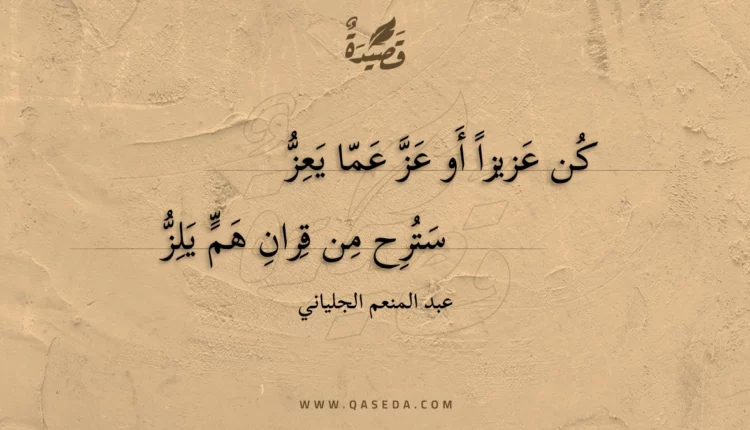 قَصِيْدَةٌ
كُن عَزيزاً أَو عَزَّ عَمّا يَعِزُّ
سَتُرِح مِن قِرانِ هَمٍّ يَلِزُّ
عبد المنعم الجلياني
WWW.QASEDA.COM